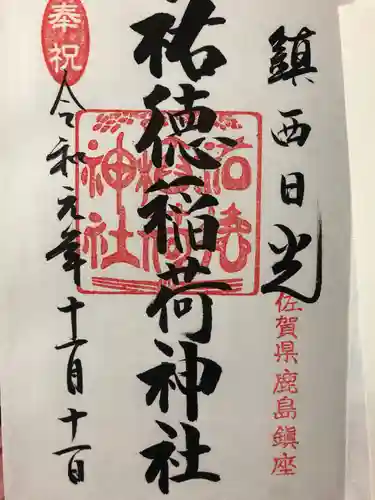 鎮西日光
佐賀県鹿島鎮座
祐徳稲荷神社
奉祝
令和元年十一月十一日